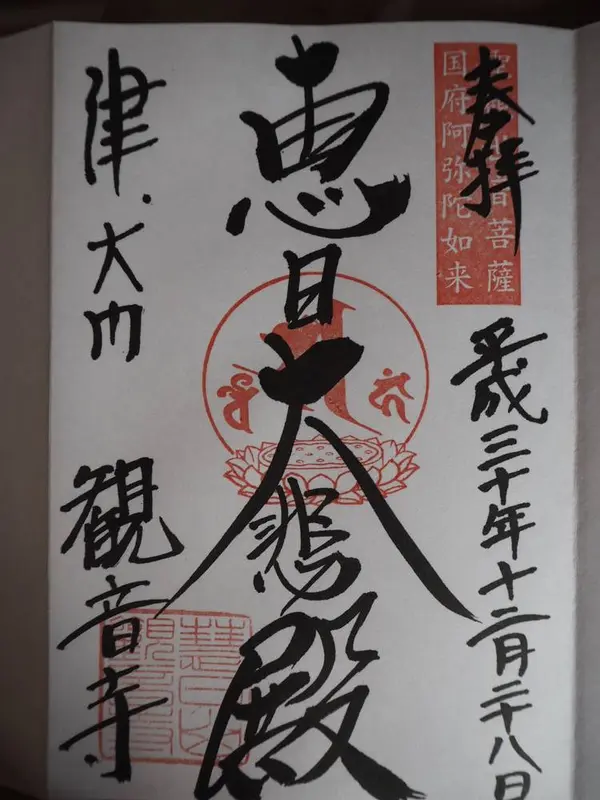 奉拝
聖観世音菩薩
国府阿弥陀如来
平成三十年十二月二十八日
恵日大悲殿
津・大門
観音寺
慧日山
観音寺